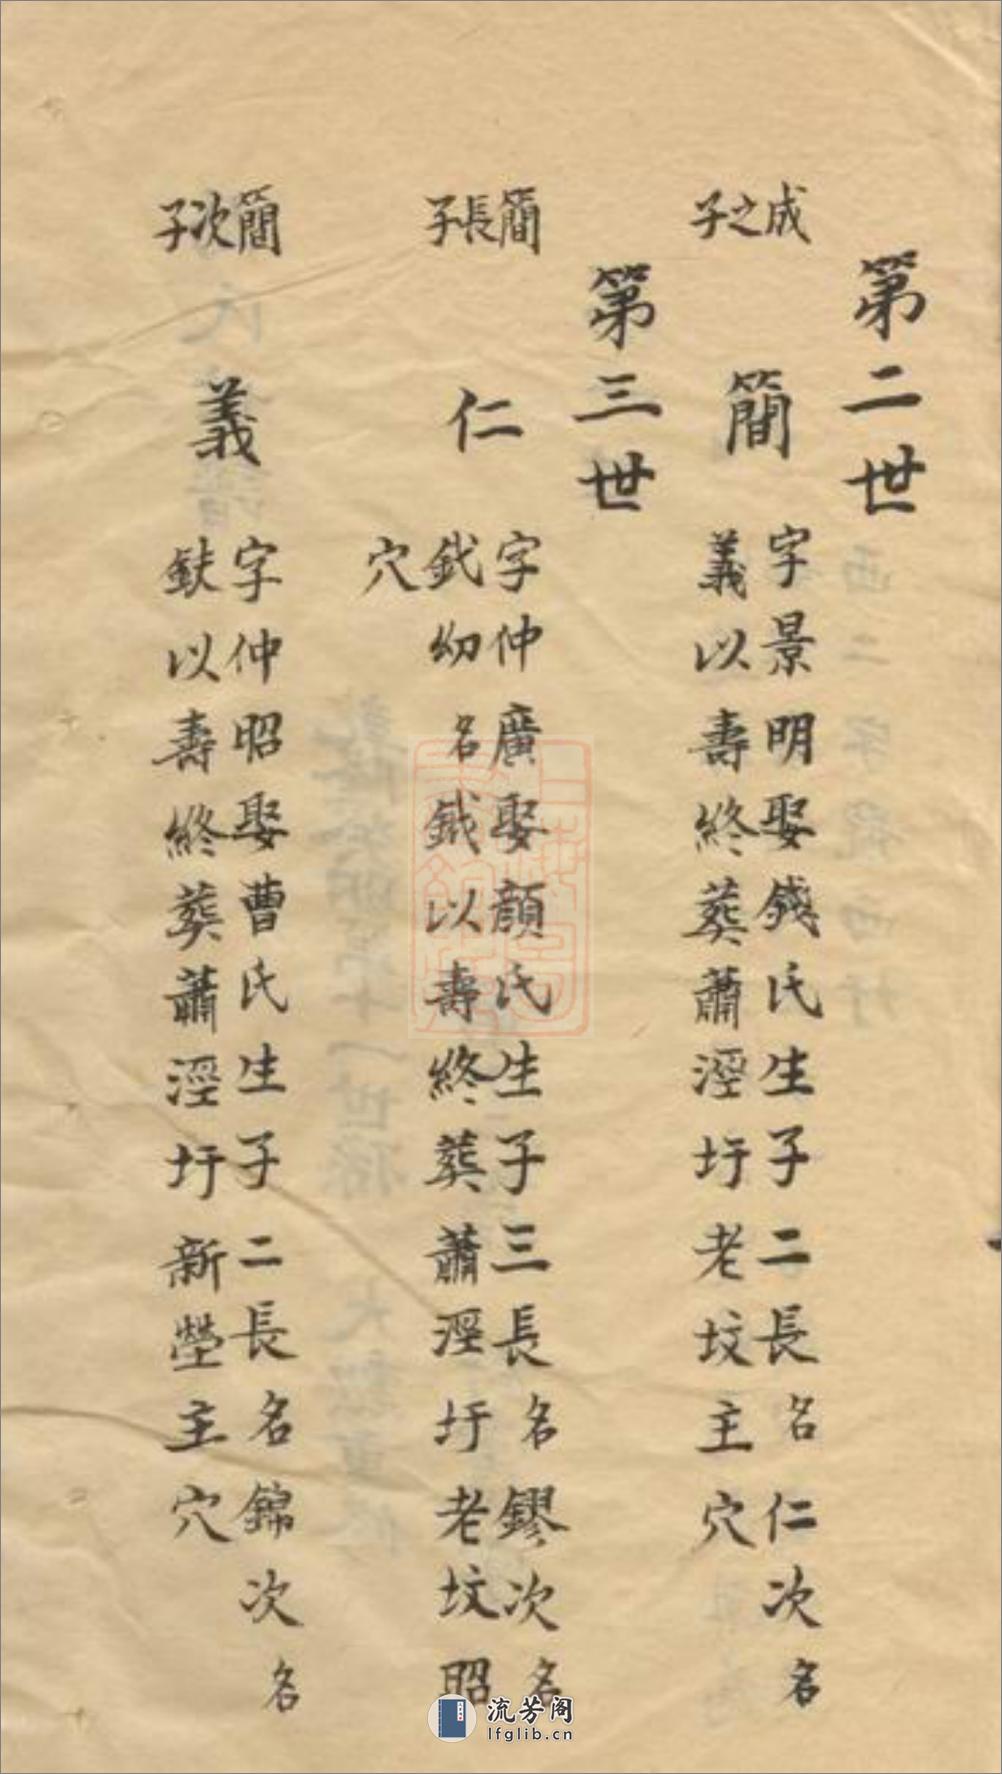 第二世
成之子
簡
字景明娶錢氏生子二長名仁次名
義以壽終葬蕭涇圩老坟主穴
第三世
簡長子
仁
字仲廣娶顔氏生子三長名鏐次名
鉞幼名鉞以壽終葬蕭涇圩老坟昭
穴
簡次子
義
字仲昭娶曹氏生子二長名錦次名
鈇以壽終葬蕭涇圩新塋主穴
流芳阁
lfglib.cn